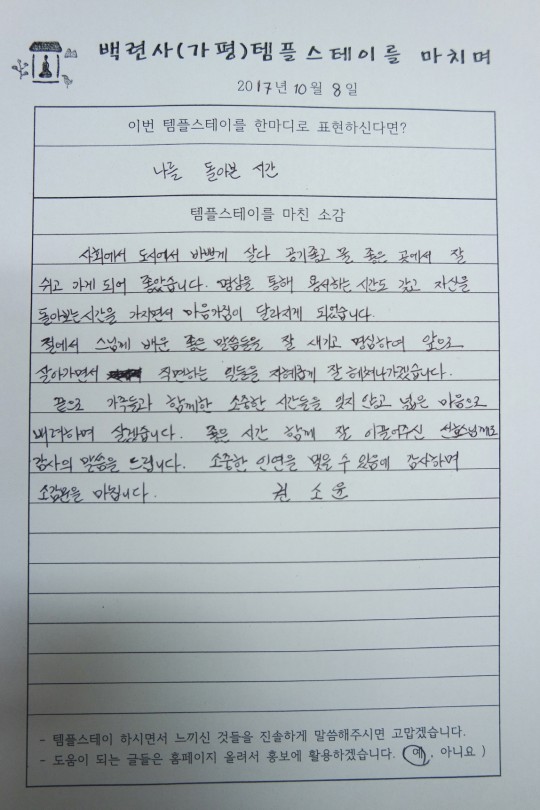 백련사(가평)템플스테이를 마치며
2017년 10월 8일
이번 템플스테이를 한마디로 표현하신다면?
나를 돌아본 시간
템플스테이를 마친 소감
사회에서 도시에서 바쁘게 살다 공기좋고 물 좋은 곳에서 잘
쉬고 가게 되어 좋았습니다. 명상을 통해 용서하는 시간도 갖고 자신을
돌아보는 시간을 가지면서 마음가짐이 달라지게 되었습니다.
절에서 스님께 배운 좋은 말씀들을 잘 새기고 명심하여 앞으로
살아가면서 직면하는 일들을 지혜롭게 잘 헤쳐나가겠습니다.
끝으로 가족들과 함께한 소중한 시간들을 잊지 않고 넓은 마음으로
배려하며 살겠습니다. 좋은 시간 함께 잘 이끌어주신 선호스님께도
감사의 말씀을 드립니다. 소중한 인연을 맺을 수 있음에 감사하며
소감문을 마칩니다. 권 소 윤
- 템플스테이 하시면서 느끼신 것들을 진솔하게 말씀해주시면 고맙겠습니다.
- 도움이 되는 글들은 홈페이지 올려서 홍보에 활용하겠습니다. (예, 아니요 )